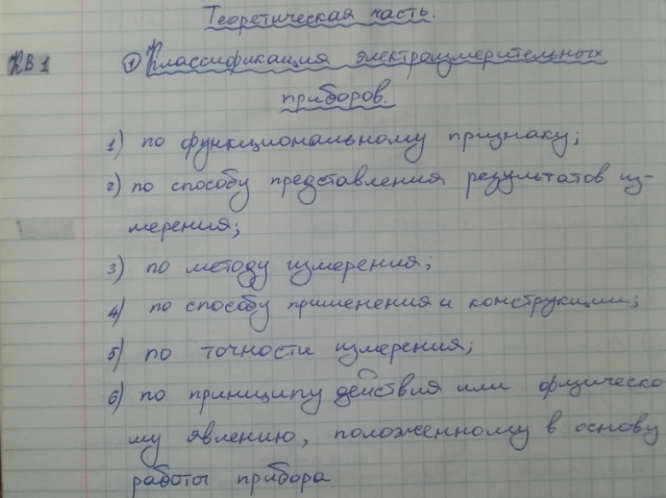 Теоретическая часть.
КВ 1 ① Классификация электроизмерительных
приборов.
1) по функциональному признаку;
2) по способу представления результатов из-
мерения;
3) по методу измерения;
4) по способу применения и конструкции;
5) по точности измерения;
6) по принципу действия или физическо
му явлению, положенному в основу
работы прибора